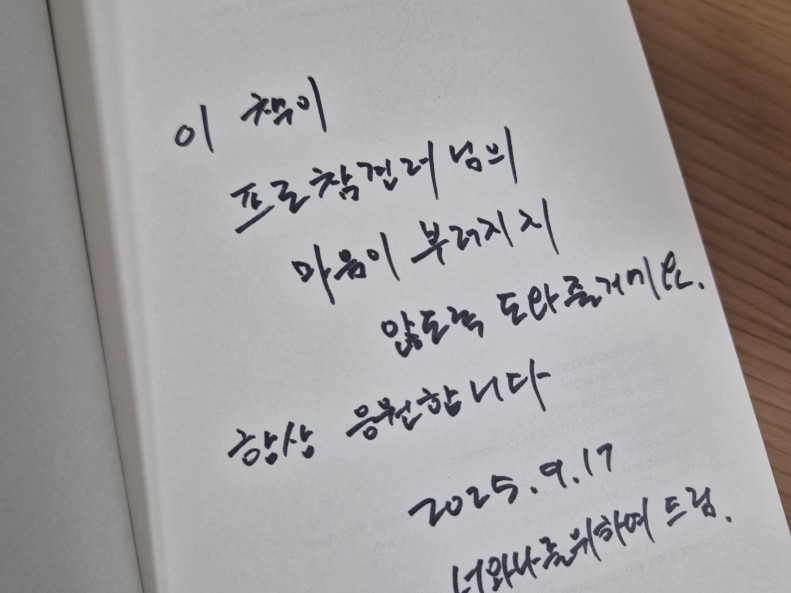 이 책이
프로참견러님의
마음이 부러지지
않도록 도와줄거에요.
항상 응원합니다
2025.9.17
너와나를위하여 드림.